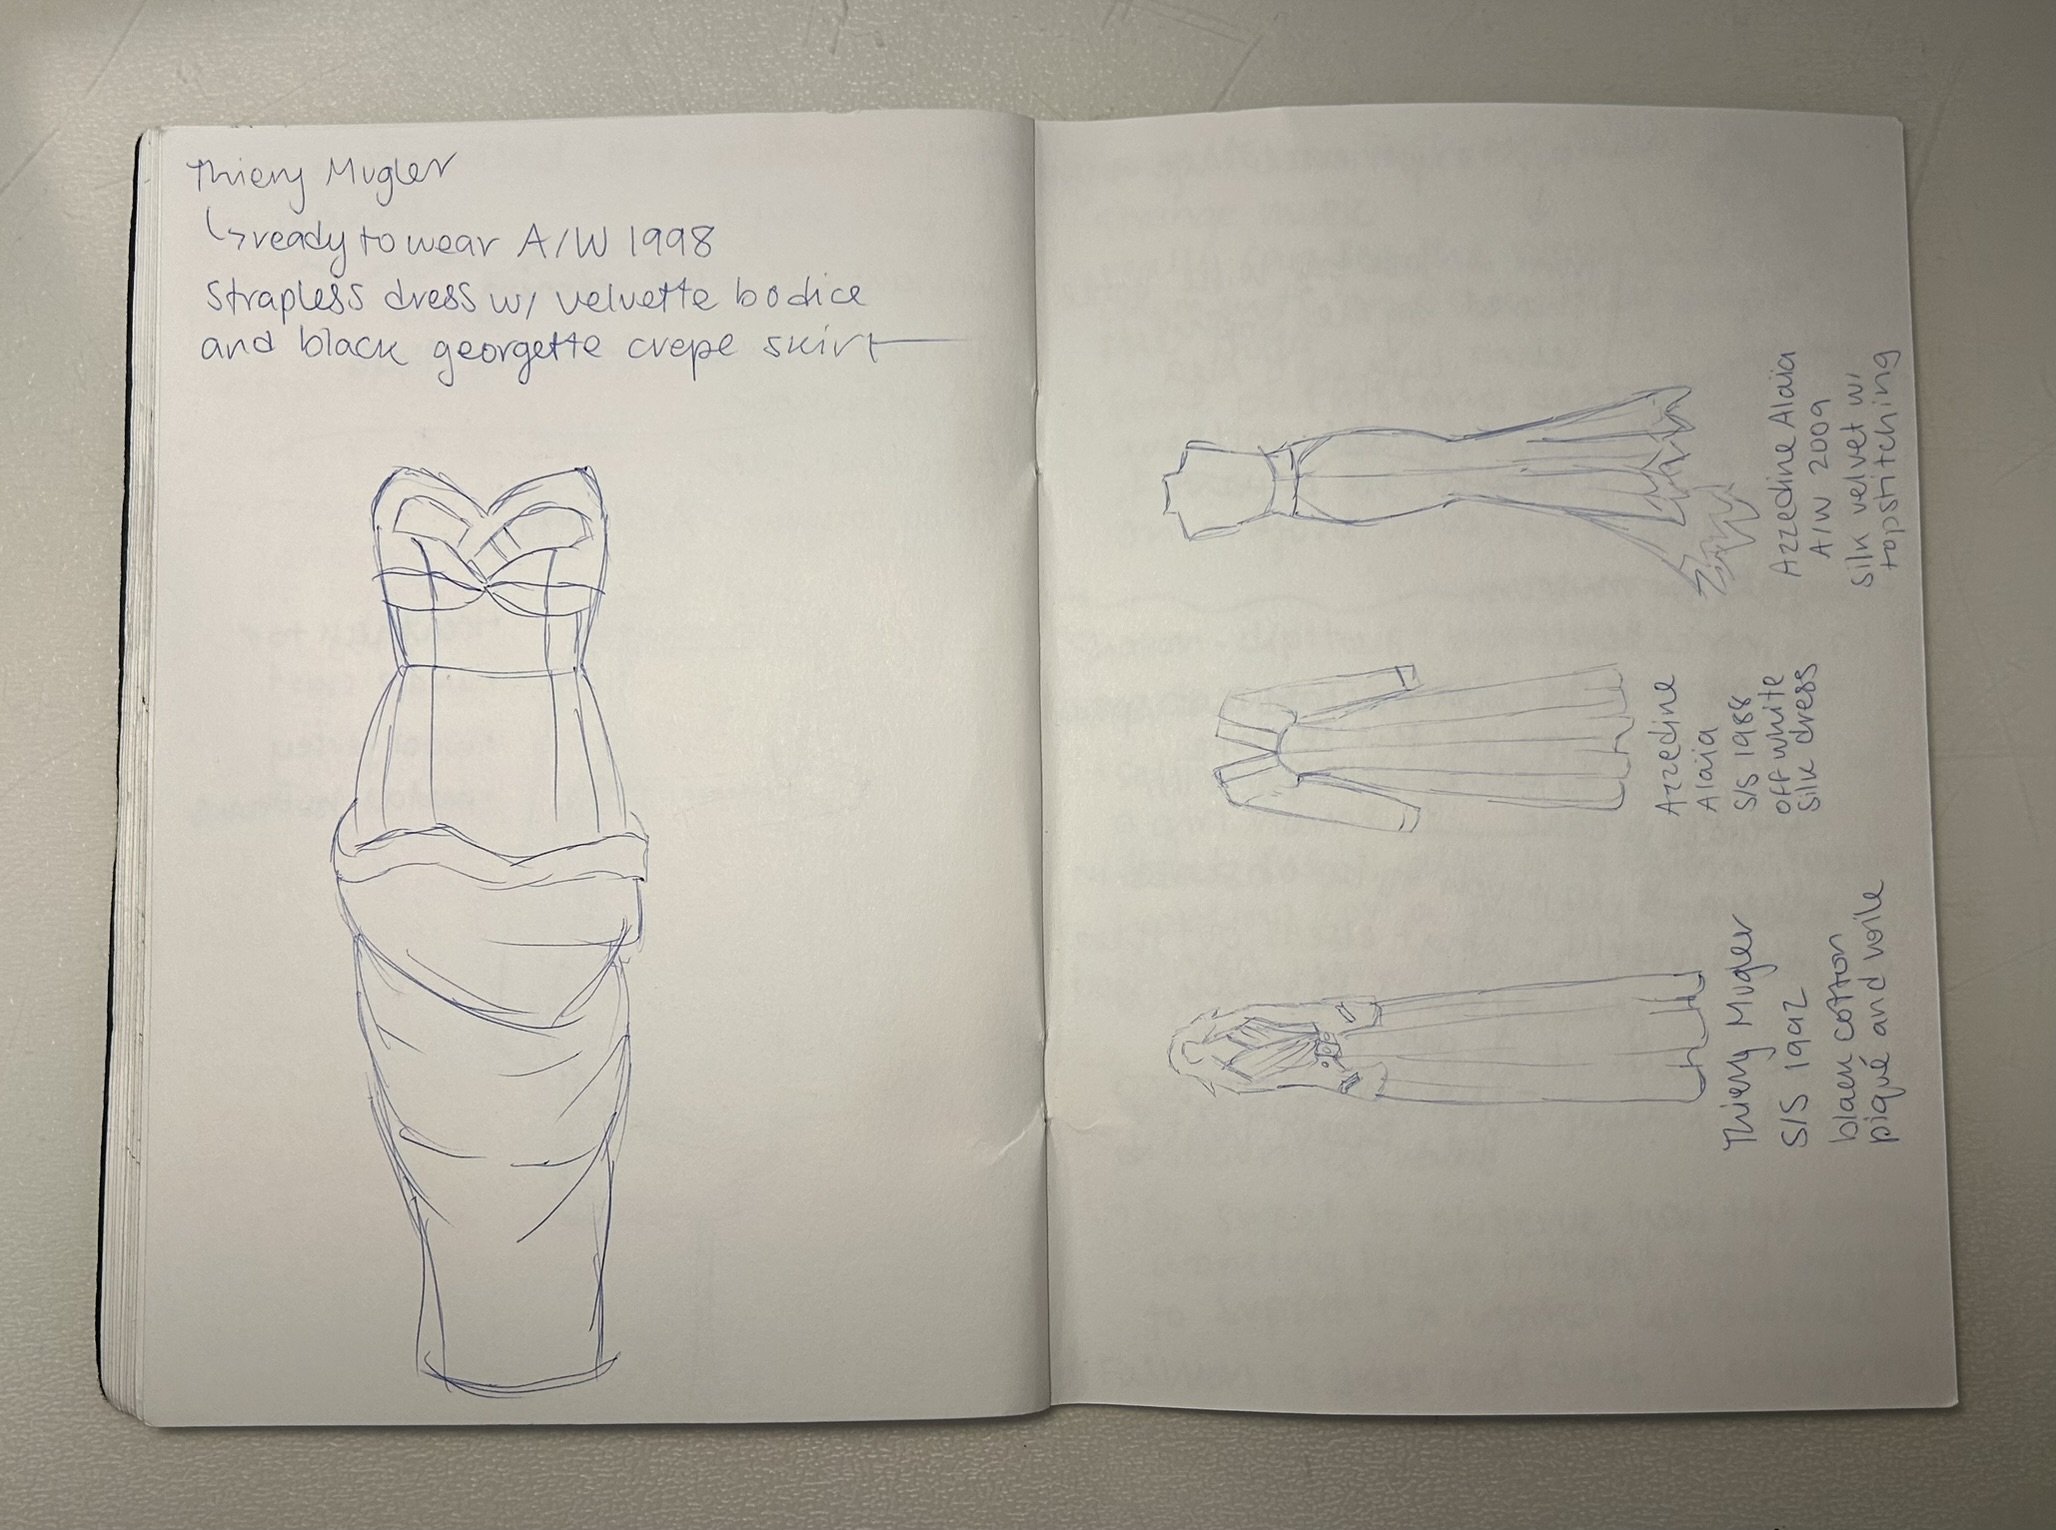 Thierry Mugler
↳ ready to wear A/W 1998
strapless dress w/ velvette bodice
and black georgette crepe skirt
Azzedine Alaïa
A/W 2009
silk velvet w/
topstitching
Azzedine
Alaia
S/S 1988
off white
silk dress
Thierry Mugler
S/S 1992
black cotton
piqué and voile